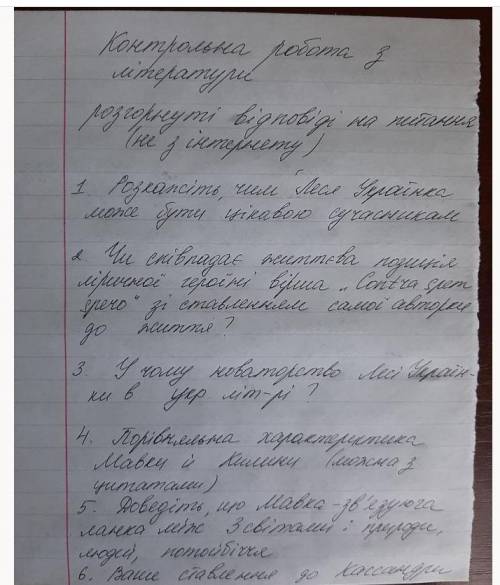 Контрольна робота з
літератури
розгорнуті відповіді на питання
(не з інтернету)
1 Розкажіть, чим Леся Українка
може бути цікавою сучасникам
2 Чи співпадає життєва позиція
ліричної героїні вірша „Contra spem
spero" зі ставленням самої авторки
до життя?
3. У чому новаторство Лесі Україн-
ки в укр літ-рі?
4. Порівняльна характеристика
Мавки й Килини (можна з
цитатами)
5. Доведіть, що Мавка-зв'язуюча
ланка між 3 світами: природи,
людей, потойбіччя
6. Ваше ставлення до Кассандри